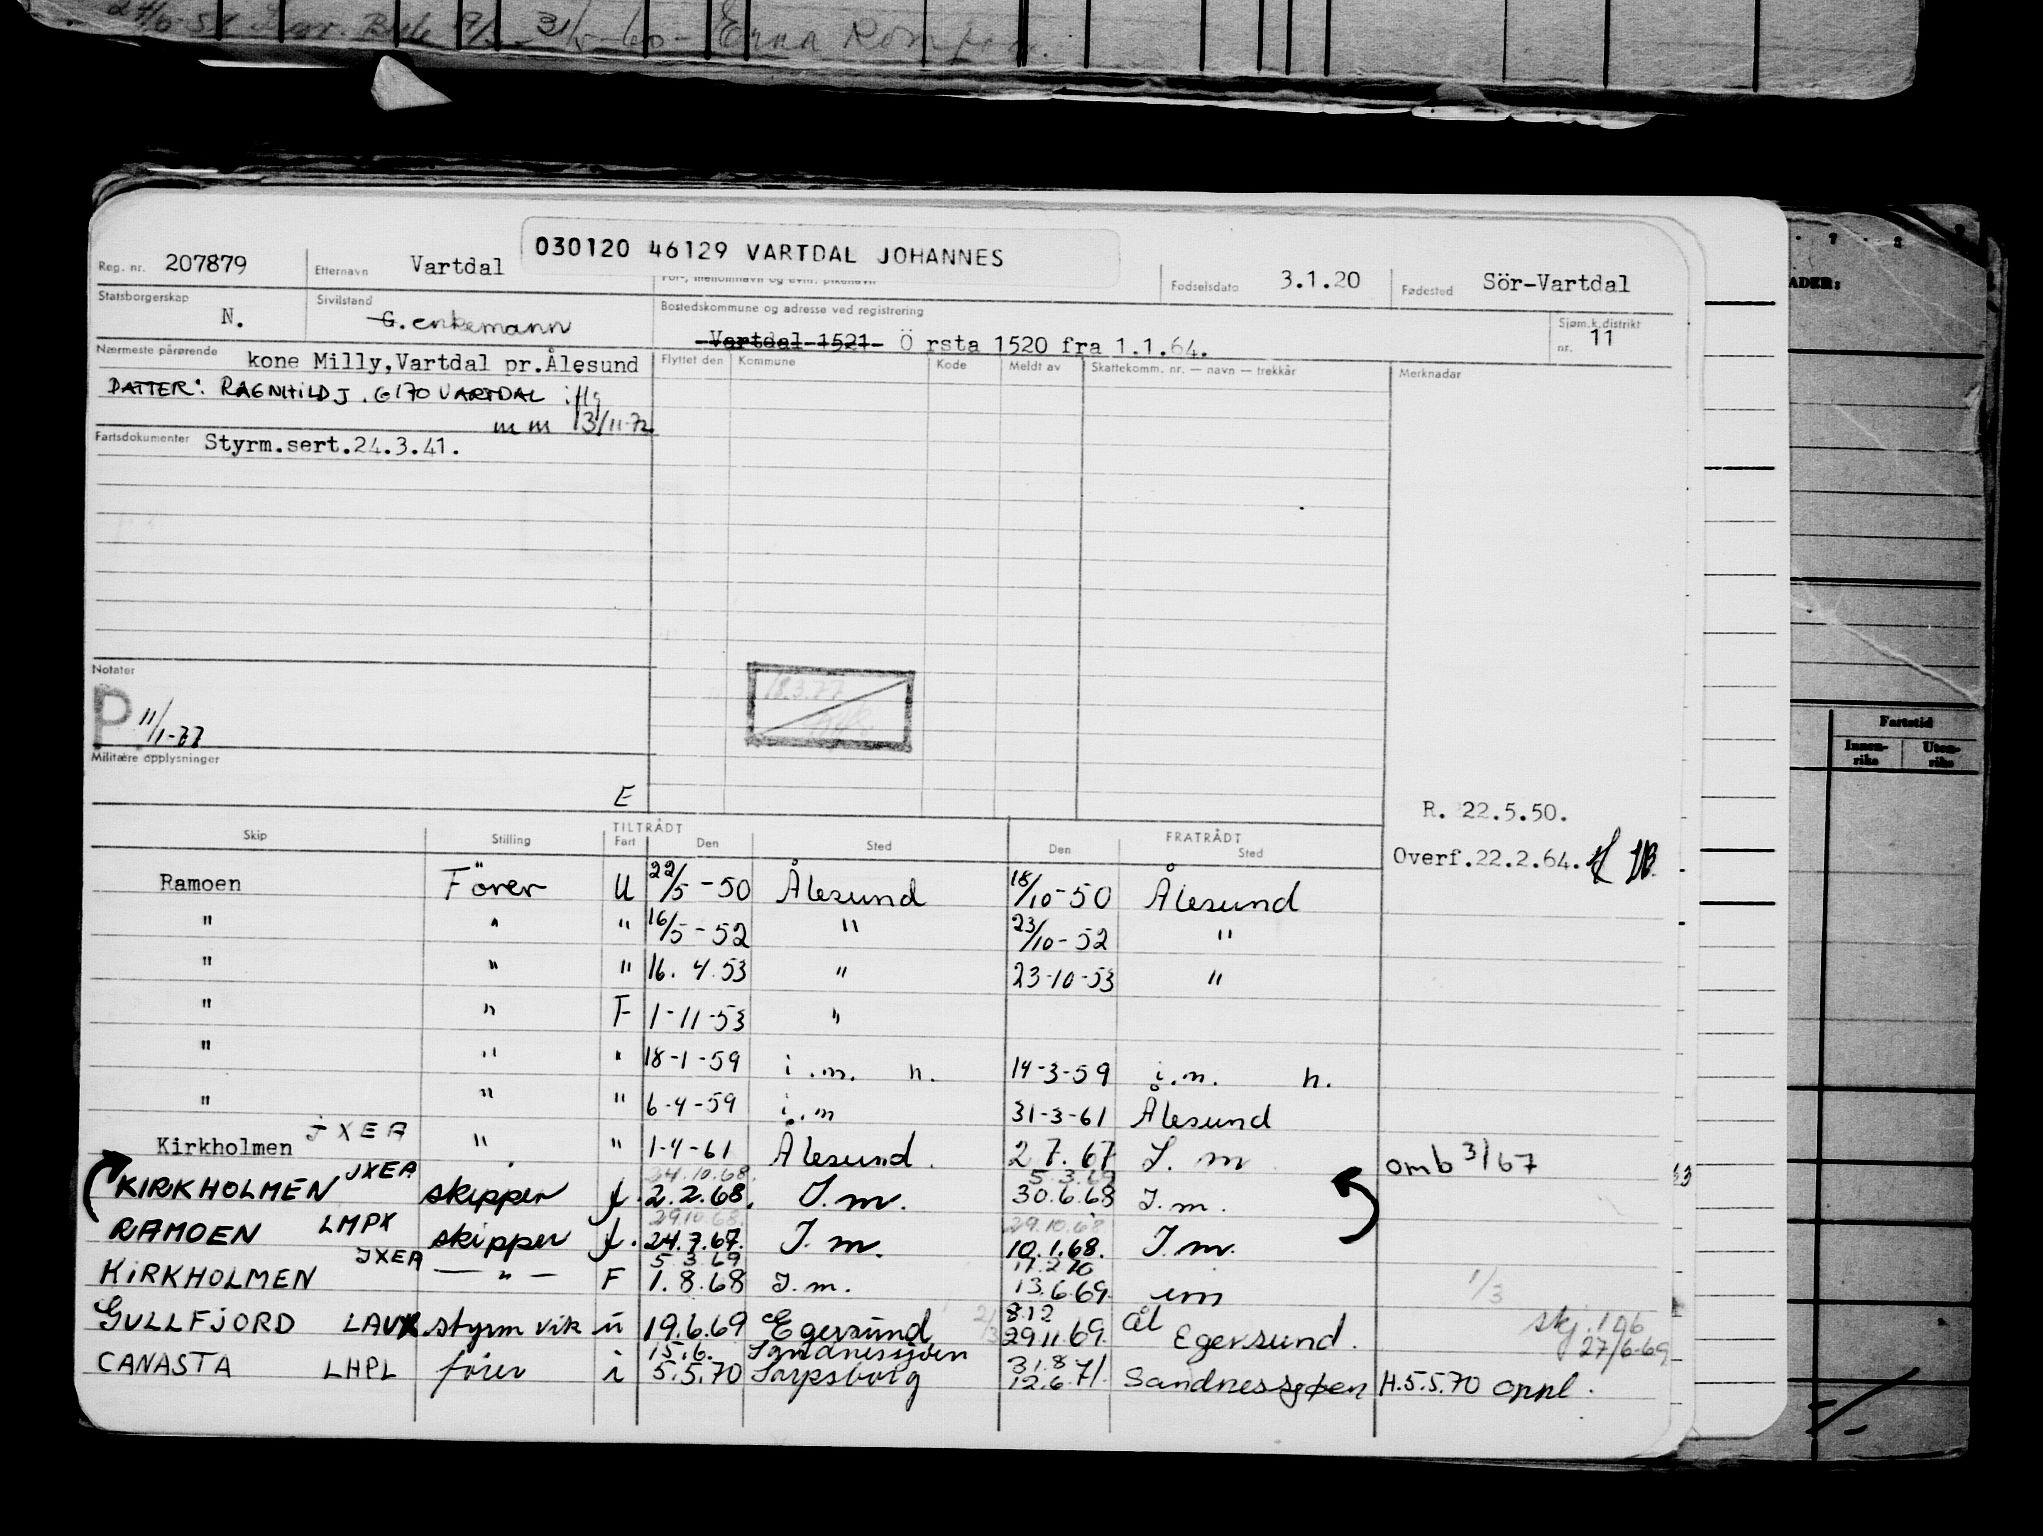 030120 46129 VARTDAL JOHANNES
Reg. nr. 207879 Etternavn Vartdal Fødselsdato 3.1.20 Fødested Sör-Vartdal
Statsborgerskap N. Sivilstand G. enkemann Bostedskommune og adresse ved registrering Sjøm.k.distrikt
Vartdal 1521 Ö rsta 1520 fra 1.1.64. nr. 11
Nærmeste pårørende kone Milly, Vartdal pr. Ålesund Flyttet den Kommune Kode Meldt av Skattekomm. nr. — navn — trekkår Merknader
DATTER: RAGNHILD J. 6170 VARTDAL iflg
m m 13/11-72
Fartsdokumenter Styrm.sert.24.3.41.
Notater
P 11/1-77
18.3.77
Militære opplysninger
E
R. 22.5.50.
Overf.22.2.64.
Skip Stilling TILTRÅDT Fart Den Sted FRATRÅDT Den Sted
Ramoen Förer U 22/5-50 Ålesund 18/10-50 Ålesund
" " " 16/5-52 " 23/10-52 "
" " " 16.4.53 " 23-10-53 "
" " F 1-11-53 "
" " " 18-1-59 i.m. h. 14-3-59 i.m. h.
" " " 6-4-59 i.m 31-3-61 Ålesund
Kirkholmen JXEA " " 1-4-61 Ålesund. 2.7.67 I. m omb 3/67
24.10.68. 5.3.69
KIRKHOLMEN JXEA skipper f. 2.2.68. I.m. 30.6.68 I.m.
29.10.68. 29.10.68
RAMOEN LMPX skipper f. 24.7.67. I.m. 10.1.68. I.m.
5.3.69 17.2.70
KIRKHOLMEN JXEA — " — F 1.8.68 I.m. 13.6.69. im 1/3
8.12 ål
GULLFJORD LAVX styrm vik u 19.6.69 Egersund 29.11.69. Egersund. skj. 106
27/6-69
15.6. Sandnessjøen 31.8
CANASTA LHPL fører i 5.5.70 Sarpsborg 12.6 71. Sandnessjøen H.5.5.70 oppl.
Fartstid
Innen-
rike
Uten-
rike